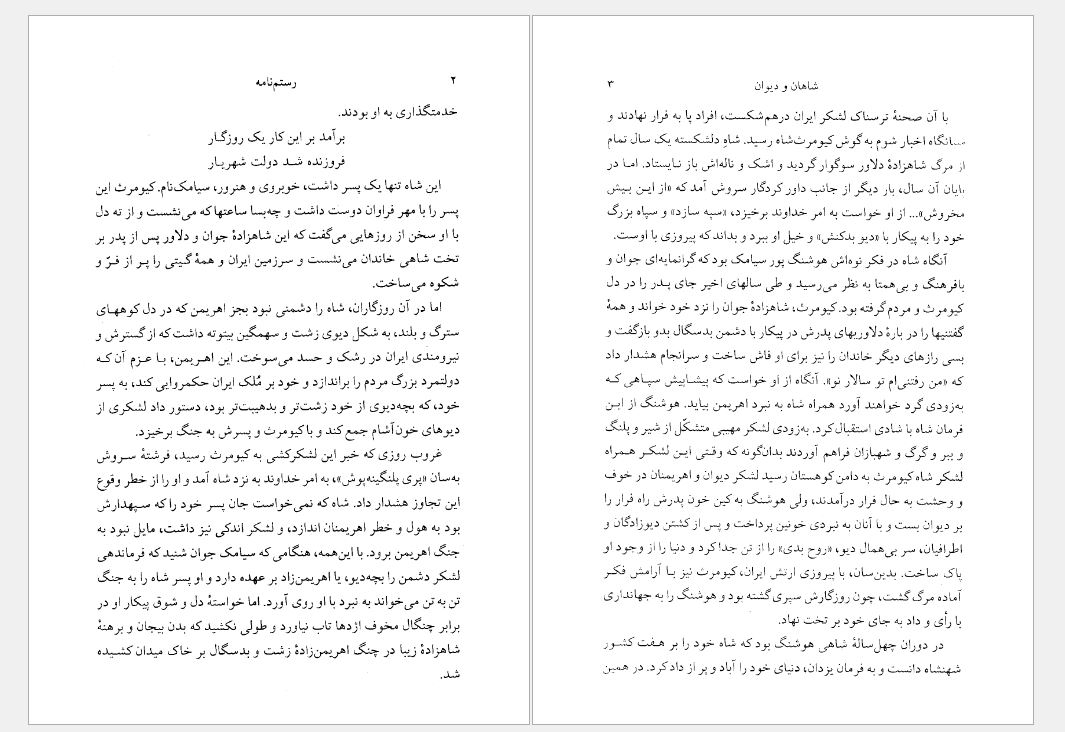 ۲
رستم‌نامه
خدمتگذاری به او بودند.
برآمد بر این کار یک روزگـار
فروزنده شـد دولت شهریـار
این شاه تنها یک پسر داشت، خوبروی و هنرور، سیامک‌نام. کیومرث این
پسر را با مهر فراوان دوست داشت و چه‌بسا ساعتها که می‌نشست و از ته دل
با او سخن از روزهایی می‌گفت که این شاهزادهٔ جوان و دلاور پس از پدر بر
تخت شاهی خاندان می‌نشست و سرزمین ایران و همهٔ گـیتی را پـر از فـرّ و
شکوه می‌ساخت.
اما در آن روزگاران، شاه را دشمنی نبود بجز اهریمن که در دل کوههـای
سترگ و بلند، به شکل دیوی زشت و سهمگین بیتوته داشت که از گسترش و
نیرومندی ایران در رشک و حسد می‌سوخت. این اهـریمن، بـا عـزم آن‌کـه
دولتمرد بزرگ مردم را براندازد و خود بر مُلک ایران حکمروایی کند، به پسر
خود، که بچه‌دیوی از خود زشت‌تر و بدهیبت‌تر بود، دستور داد لشکری از
دیوهای خون‌آشام جمع کند و با کیومرث و پسرش به جنگ برخیزد.
غروب روزی که خبر این لشکرکشی به کیومرث رسید، فرشتهٔ سـروش
به‌سان «پری پلنگینه‌پوش»، به امر خداوند به نزد شاه آمد و او را از خطر وقوع
این تجاوز هشدار داد. شاه که نمی‌خواست جان پسر خود را که سـپهدارش
بود به هول و خطر اهریمنان اندازد، و لشکر اندکی نیز داشت، مایل نبود به
جنگ اهریمن برود. با این‌همه، هنگامی که سیامک جوان شنید که فرماندهی
لشکر دشمن را بچه‌دیو، یا اهریمن‌زاد بر عهده دارد و او پسر شاه را به جنگ
تن به تن می‌خواند به نبرد با او روی آورد. اما خواستهٔ دل و شوق پیکار او در
برابر چنگال مخوف اژدها تاب نیاورد و طولی نکشید که بدن بیجان و برهنهٔ
شاهزادهٔ زیبا در چنگ اهریمن‌زادهٔ زشت و بدسگال بر خاک میدان کشـیده
شد.
شاهان و دیوان
۳
با آن صحنهٔ ترسناک لشکر ایران درهم‌شکست، افراد پا به فرار نهادند و
اخبار شوم به گوش کیومرث‌شاه رسید. شاهِ دلشکسته یک سال تمام
از مرگ شاهزادهٔ دلاور سوگوار گردید و اشک و ناله‌اش باز نـایستاد. امـا در
پایان آن سال، بار دیگر از جانب داور کردگار سروش آمد که «از ایـن بـیش
مخروش»... از او خواست به امر خداوند برخیزد، «سپه سازد» و سپاه بزرگ
خود را به پیکار با «دیو بدکنش» و خیل او ببرد و بداند که پیروزی با اوست.
آنگاه شاه در فکر نوه‌اش هوشنگ پور سیامک بود که گرانمایه‌ای جوان و
بافرهنگ و بی‌همتا به نظر می‌رسید و طی سالهای اخیر جای پـدر را در دل
کیومرث و مردم گرفته بود. کیومرث، شاهزادهٔ جوان را نزد خود خواند و همهٔ
گفتنیها را در بارهٔ دلاوریهای پدرش در پیکار با دشمن بدسگال بدو بازگفت و
بسی رازهای دیگر خاندان را نیز برای او فاش ساخت و سرانجام هشدار داد
که «من رفتنی‌ام تو سالار نو». آنگاه از او خواست که پیشـاپیش سپـاهی کـه
به‌زودی گرد خواهند آورد همراه شاه به نبرد اهریمن بیاید. هوشنگ از ایـن
فرمان شاه با شادی استقبال کرد. به‌زودی لشکر مهیبی متشکّل از شیر و پلنگ
و ببر و گرگ و شهبازان فراهم آوردند بدان‌گونه که وقـتی ایـن لشکـر هـمراه
لشکر شاه کیومرث به دامن کوهستان رسید لشکر دیوان و اهریمنان در خوف
و وحشت به حال فرار درآمدند، ولی هوشنگ به کین خون پدرش راه فرار را
بر دیوان بست و با آنان به نبردی خونین پرداخت و پس از کشتن دیوزادگان و
اطرافیان، سر بی‌همال دیو، «روح بدی» را از تن جدا کرد و دنیا را از وجود او
پاک ساخت. بدین‌سان، با پیروزی ارتش ایران، کیومرث نیز بـا آرامش فکـر
آماده مرگ گشت، چون روزگارش سپری گشته بود و هوشنگ را به جهانداری
با رأی و داد به جای خود بر تخت نهاد.
در دوران چهل‌سالهٔ شاهی هوشنگ بود که شاه خود را بر هـفت کشـور
شهنشاه دانست و به فرمان یزدان، دنیای خود را آباد و پر از داد کرد. در همین